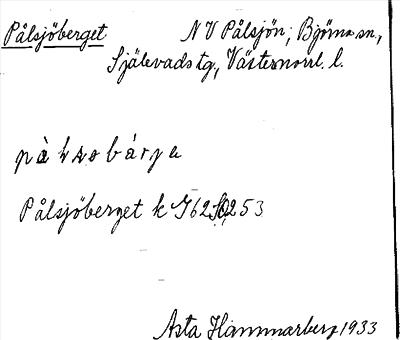 Pålsjöberget NV Pålsjön, Björna sn,
Själevads tg., Västernorrl. l.
Pålsjöberget k J62 253
Asta Hammarberg 1933